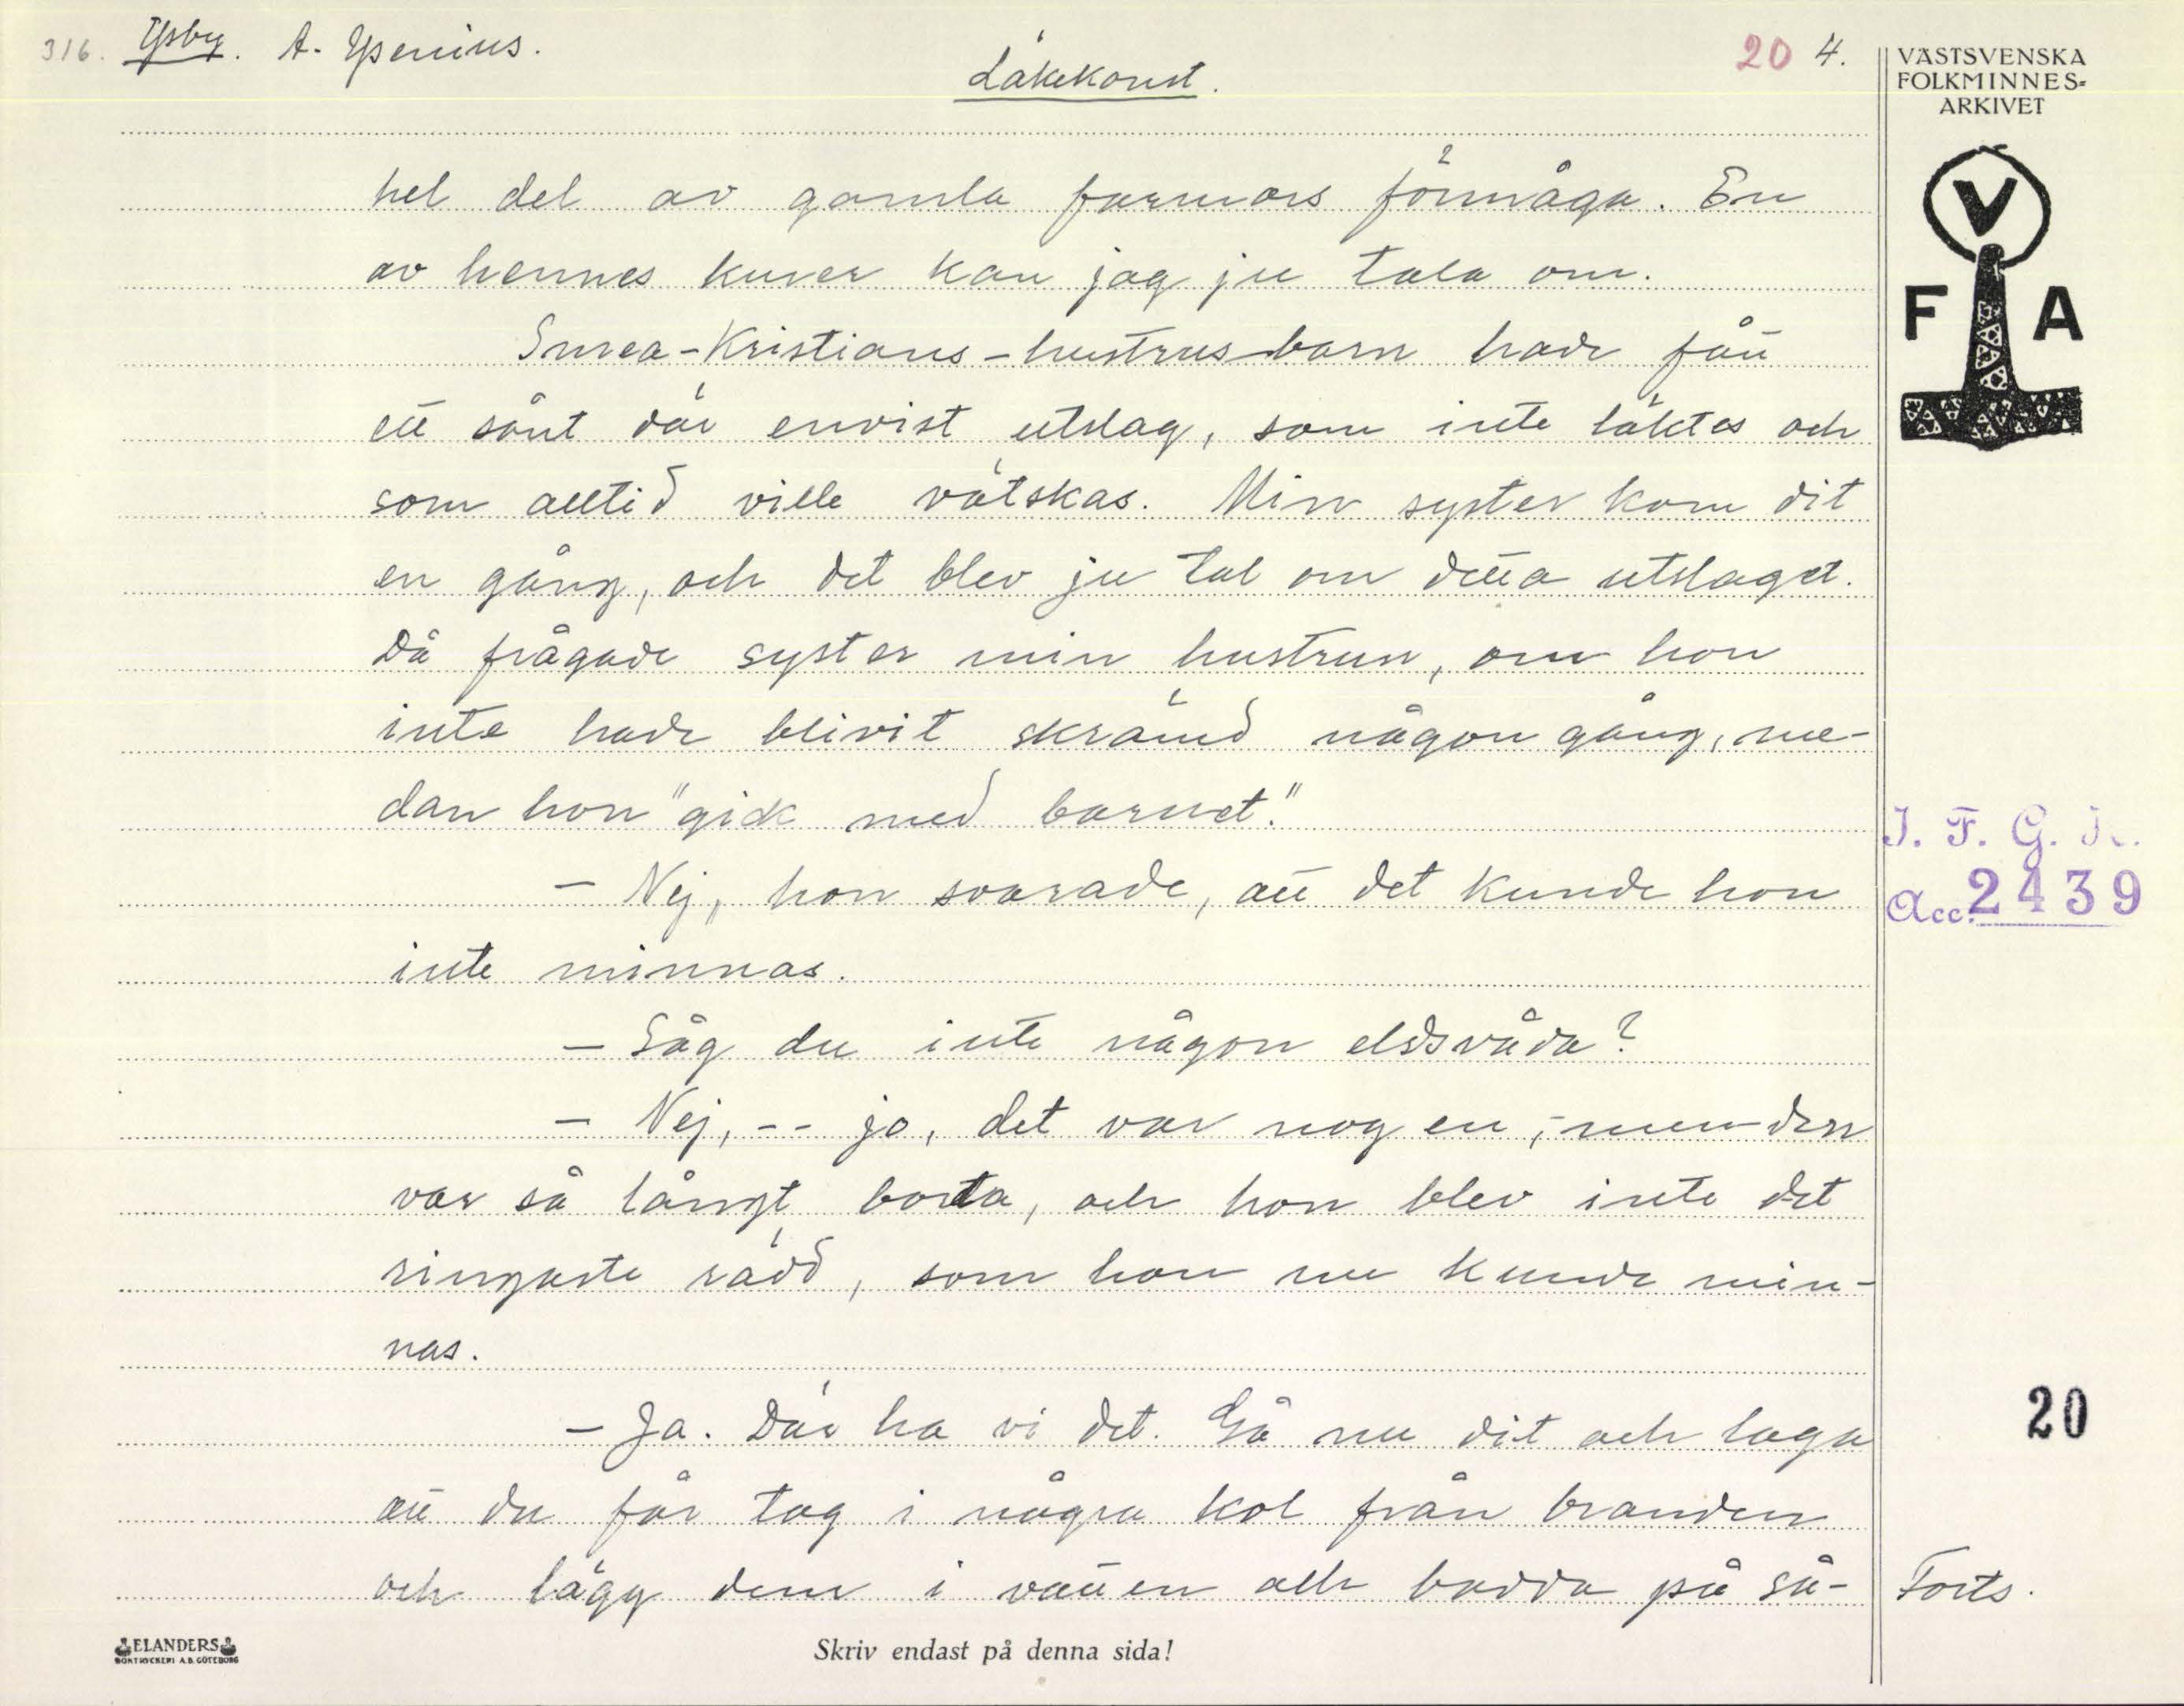 316. Ysby. A. Ysenius.
Läkekonst.
20 4.
VÄSTSVENSKA
FOLKMINNES-
ARKIVET
V
F A
hel del av gamla farmors förmåga. En
av hennes kurer kan jag ju tala om.
Smea-Kristians-hustrus barn hade fått
ett sånt där envist utslag, som inte läktes och
som alltid ville vätskas. Min syster kom dit
en gång, och det blev ju tal om detta utslaget.
Då frågade syster min hustrun, om hon
inte hade blivit skrämd någon gång, me-
dan hon "gick med barnet."
- Nej, hon svarade, att det kunde hon
inte minnas.
- Såg du inte någon eldsvåda?
- Nej, -- jo, det var nog en, - men den
var så långt borta, och hon blev inte det
ringaste rädd, som hon nu kunde min-
nas.
- Ja. Där ha vi det. Gå nu dit och laga
att du får tag i några kol från branden
och lägg dem i vatten och badda på så-
I. F. G. H.
Acc. 2439
20
Forts.
ELANDERS
BOKTRYCKERI A.B. GÖTEBORG
Skriv endast på denna sida!